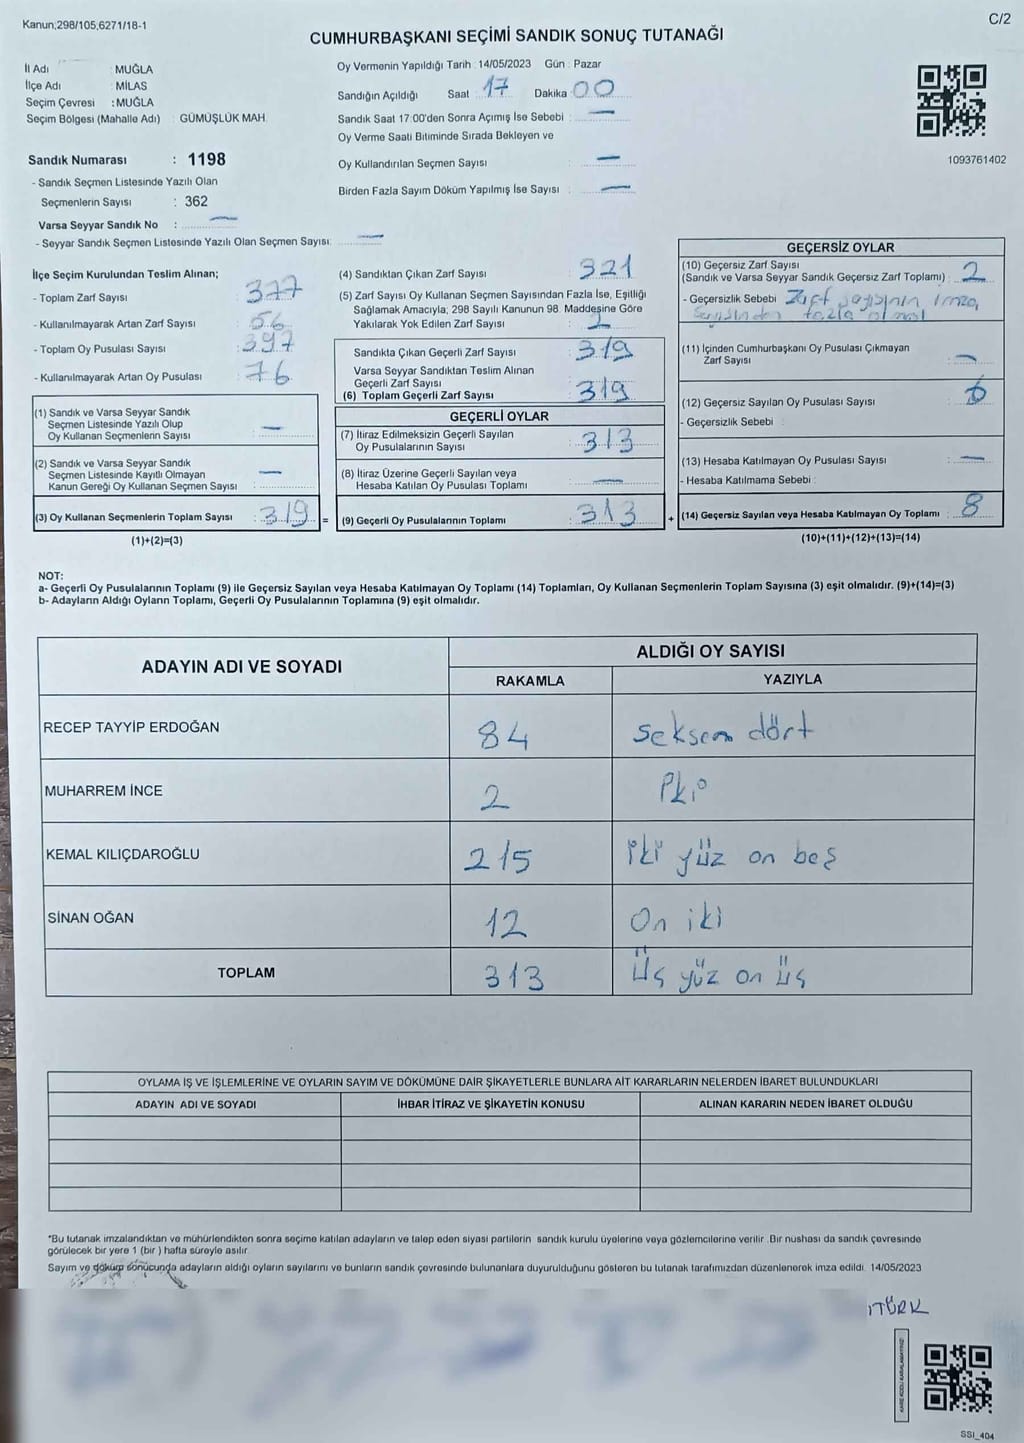 Kanun;298/105,6271/18-1
C/2
CUMHURBAŞKANI SEÇİMİ SANDIK SONUÇ TUTANAĞI
İl Adı : MUĞLA
İlçe Adı : MİLAS
Seçim Çevresi : MUĞLA
Seçim Bölgesi (Mahalle Adı) : GÜMÜŞLÜK MAH.
Sandık Numarası : 1198
- Sandık Seçmen Listesinde Yazılı Olan
Seçmenlerin Sayısı : 362
Varsa Seyyar Sandık No : —
- Seyyar Sandık Seçmen Listesinde Yazılı Olan Seçmen Sayısı: —
Oy Vermenin Yapıldığı Tarih : 14/05/2023 Gün : Pazar
Sandığın Açıldığı Saat 17 Dakika 00
Sandık Saat 17:00'den Sonra Açımış İse Sebebi : —
Oy Verme Saati Bitiminde Sırada Bekleyen ve
Oy Kullandırılan Seçmen Sayısı : —
Birden Fazla Sayım Döküm Yapılmış İse Sayısı : —
1093761402
İlçe Seçim Kurulundan Teslim Alınan;
- Toplam Zarf Sayısı : 377
- Kullanılmayarak Artan Zarf Sayısı : 56
- Toplam Oy Pusulası Sayısı : 397
- Kullanılmayarak Artan Oy Pusulası : 76
(1) Sandık ve Varsa Seyyar Sandık
Seçmen Listesinde Yazılı Olup
Oy Kullanan Seçmenlerin Sayısı : —
(2) Sandık ve Varsa Seyyar Sandık
Seçmen Listesinde Kayıtlı Olmayan
Kanun Gereği Oy Kullanan Seçmen Sayısı : —
(3) Oy Kullanan Seçmenlerin Toplam Sayısı : 319 =
(1)+(2)=(3)
(4) Sandıktan Çıkan Zarf Sayısı : 321
(5) Zarf Sayısı Oy Kullanan Seçmen Sayısından Fazla İse, Eşitliği
Sağlamak Amacıyla; 298 Sayılı Kanunun 98. Maddesine Göre
Yakılarak Yok Edilen Zarf Sayısı : 2
Sandıkta Çıkan Geçerli Zarf Sayısı : 319
Varsa Seyyar Sandıktan Teslim Alınan
Geçerli Zarf Sayısı
(6) Toplam Geçerli Zarf Sayısı : 319
GEÇERLİ OYLAR
(7) İtiraz Edilmeksizin Geçerli Sayılan
Oy Pusulalarının Sayısı : 313
(8) İtiraz Üzerine Geçerli Sayılan veya
Hesaba Katılan Oy Pusulası Toplamı : —
(9) Geçerli Oy Pusulalarının Toplamı : 313 +
GEÇERSİZ OYLAR
(10) Geçersiz Zarf Sayısı
(Sandık ve Varsa Seyyar Sandık Geçersiz Zarf Toplamı) : 2
- Geçersizlik Sebebi : Zarf sayısının imza
sayısından fazla olması
(11) İçinden Cumhurbaşkanı Oy Pusulası Çıkmayan
Zarf Sayısı : —
(12) Geçersiz Sayılan Oy Pusulası Sayısı : 6
- Geçersizlik Sebebi :
(13) Hesaba Katılmayan Oy Pusulası Sayısı : —
- Hesaba Katılmama Sebebi :
(14) Geçersiz Sayılan veya Hesaba Katılmayan Oy Toplamı : 8
(10)+(11)+(12)+(13)=(14)
NOT:
a- Geçerli Oy Pusulalarının Toplamı (9) ile Geçersiz Sayılan veya Hesaba Katılmayan Oy Toplamı (14) Toplamları, Oy Kullanan Seçmenlerin Toplam Sayısına (3) eşit olmalıdır. (9)+(14)=(3)
b- Adayların Aldığı Oyların Toplamı, Geçerli Oy Pusulalarının Toplamına (9) eşit olmalıdır.
ADAYIN ADI VE SOYADI
ALDIĞI OY SAYISI
RAKAMLA YAZIYLA
RECEP TAYYİP ERDOĞAN 84 seksen dört
MUHARREM İNCE 2 iki
KEMAL KILIÇDAROĞLU 215 iki yüz on beş
SİNAN OĞAN 12 On iki
TOPLAM 313 üç yüz on üç
OYLAMA İŞ VE İŞLEMLERİNE VE OYLARIN SAYIM VE DÖKÜMÜNE DAİR ŞİKAYETLERLE BUNLARA AİT KARARLARIN NELERDEN İBARET BULUNDUKLARI
ADAYIN ADI VE SOYADI İHBAR İTİRAZ VE ŞİKAYETİN KONUSU ALINAN KARARIN NEDEN İBARET OLDUĞU
*Bu tutanak imzalandıktan ve mühürlendikten sonra seçime katılan adayların ve talep eden siyasi partilerin sandık kurulu üyelerine veya gözlemcilerine verilir .Bir nushası da sandık çevresinde
görülecek bir yere 1 (bir ) hafta süreyle asılır.
Sayım ve döküm sonucunda adayların aldığı oyların sayılarını ve bunların sandık çevresinde bulunanlara duyurulduğunu gösteren bu tutanak tarafımızdan düzenlenerek imza edildi. 14/05/2023
TÜRK
SSI_404